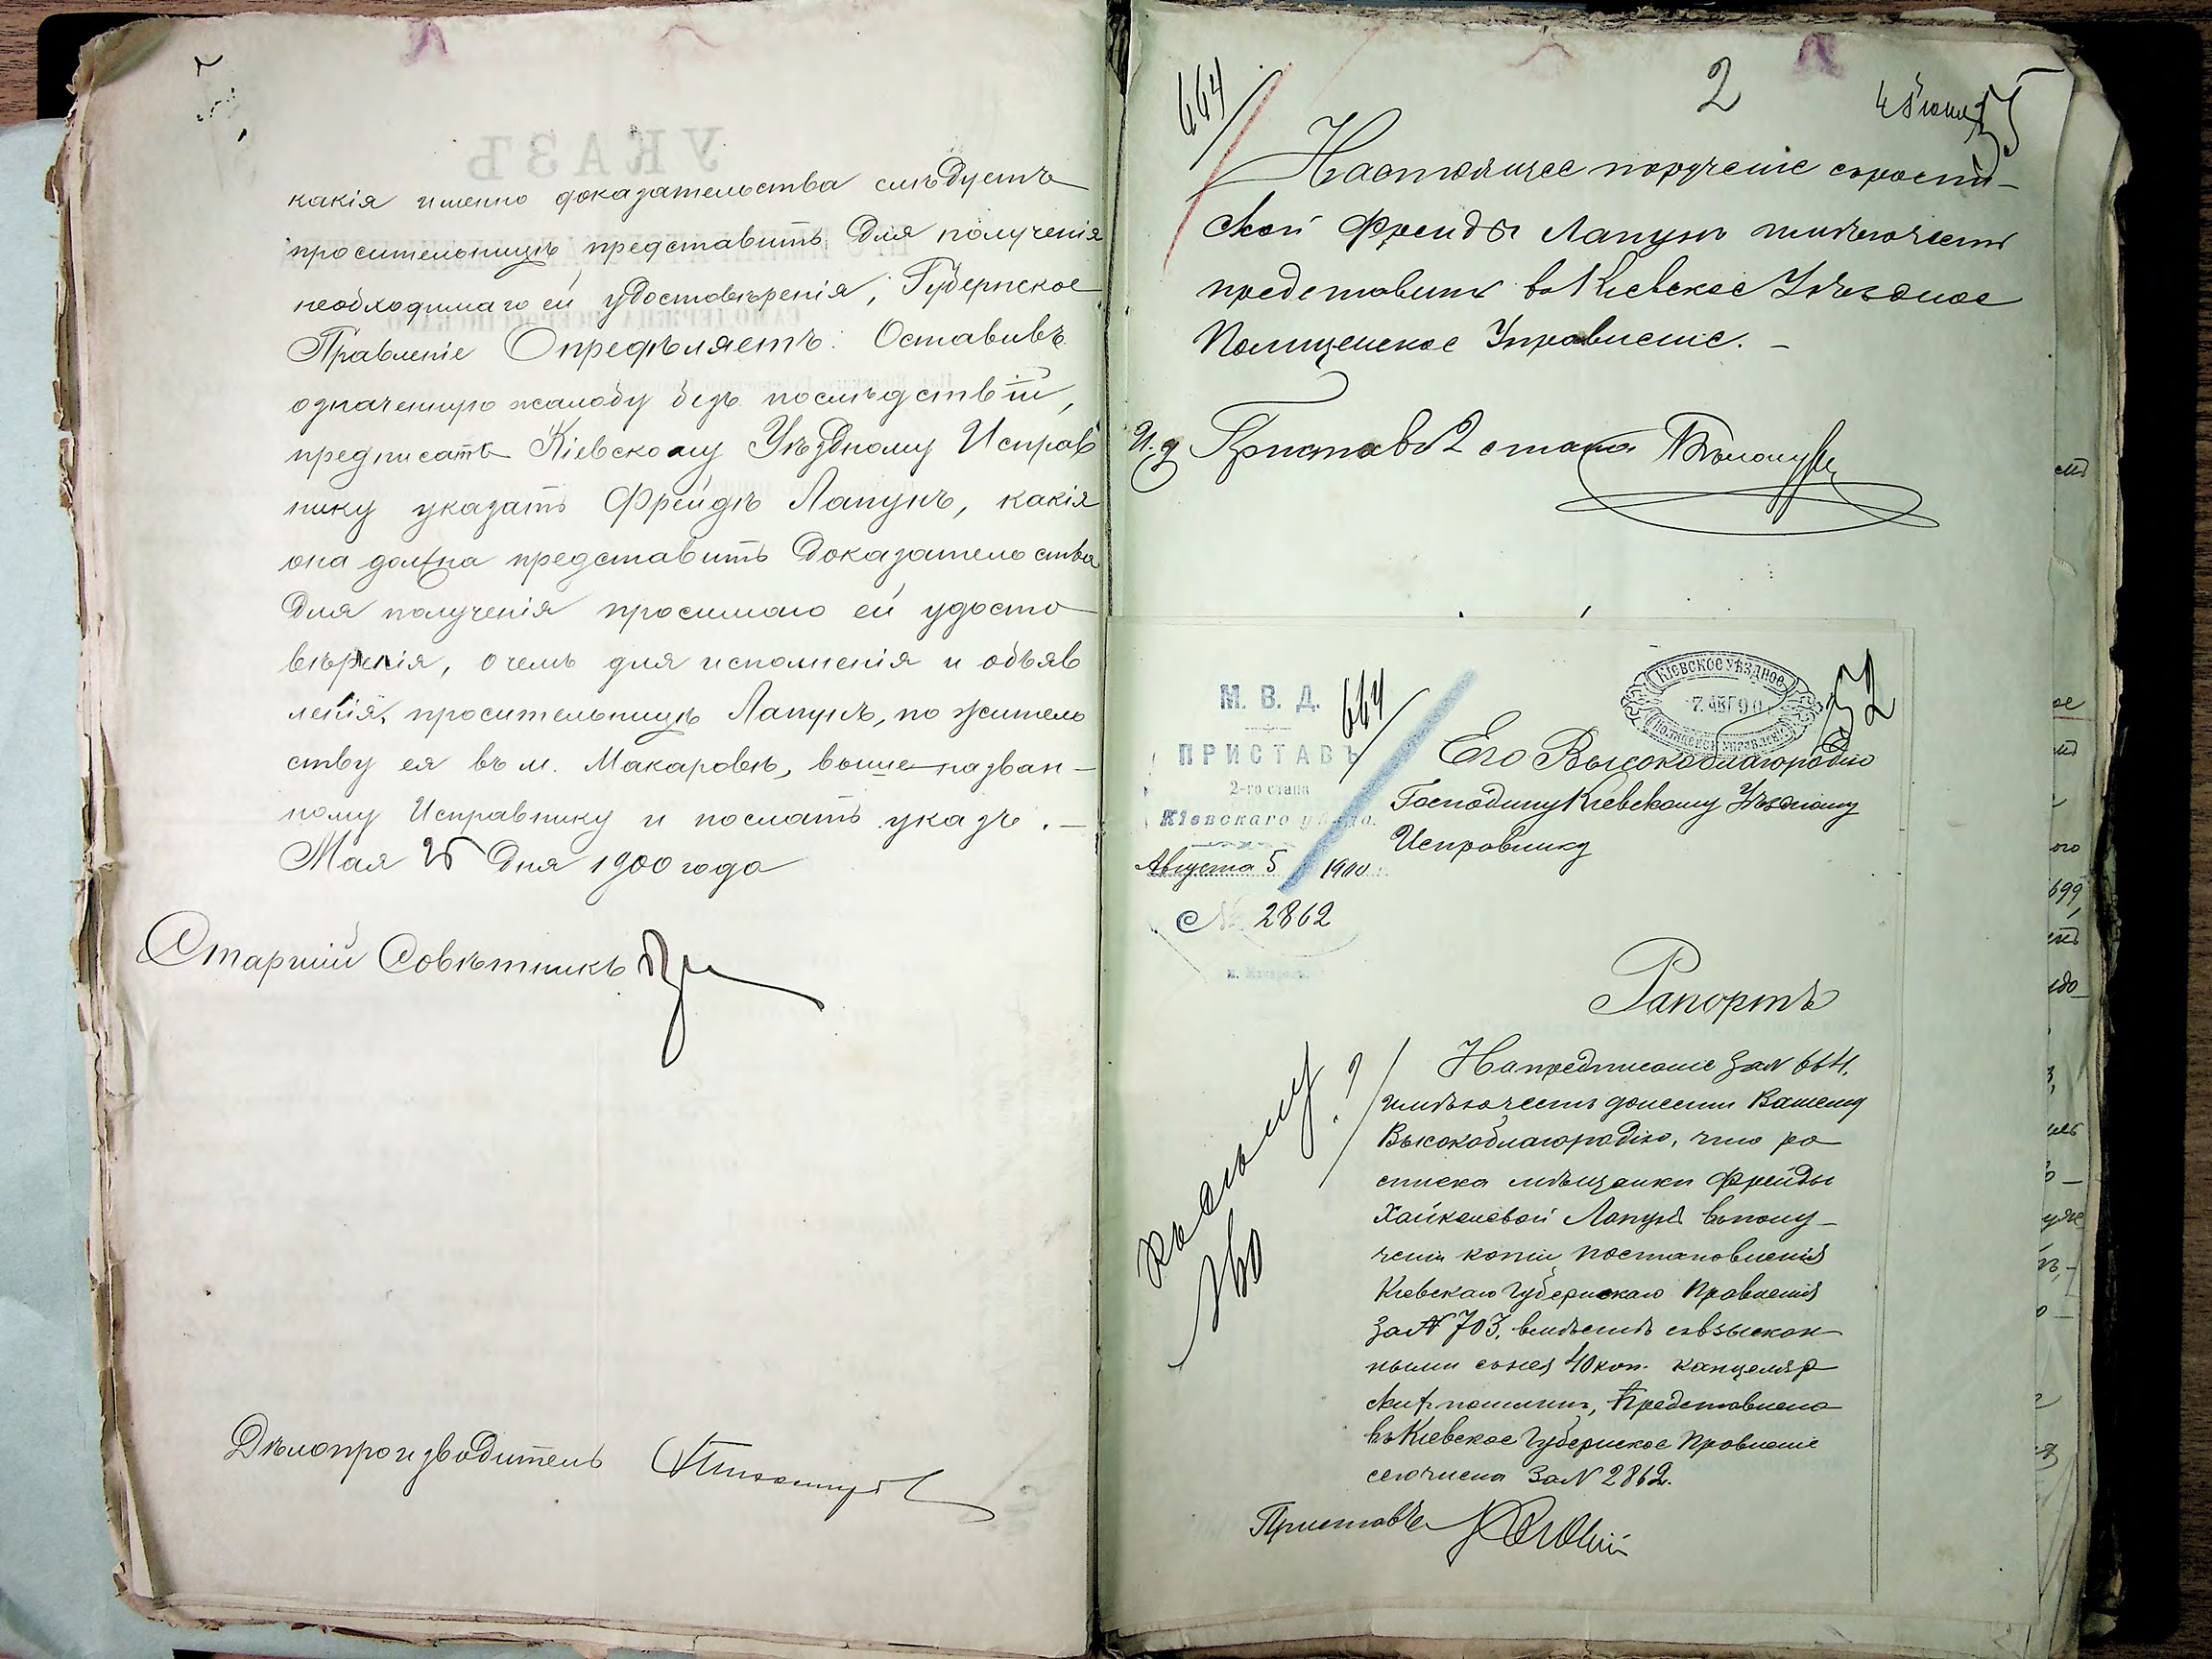 какія именно доказательства слѣдуетъ
просительницѣ представить для полученія
необходимаго ей удостовѣренія, Губернское
Правленіе Опредѣляетъ: Оставивъ
означенную жалобу безъ послѣдствій,
предписать Кіевскому Уѣздному Исправ
нику указать Фрейдѣ Лапунъ, какія
она должна представить доказательства
для полученія просимаго ей удосто
вѣренія, о чемъ для исполненія и объяв
ленія, просительницѣ Лапунъ, по житель
ству ея въ м. Макаровѣ, выше назван-
ному Исправнику и послать указъ.-
Мая 25 дня 1900 года
Старшій Совѣтникъ
Дѣлопроизводитель
УКАЗЪ
664
2
Настоящее порученіе съ распи-
ской Фрейды Лапунъ имѣю честь
представить въ Кіевское Уѣздное
Полицейское Управленіе. -
И. д. Пристава 2 стана
М. В. Д.
ПРИСТАВЪ
2-го стана
Кіевскаго уѣзда.
Августа 5 1900
№ 2862
м. Макаровъ
664
КІЕВСКОЕ УѢЗДНОЕ
7 АВГ 90
ПОЛИЦЕЙСК. УПРАВЛЕНІЕ
52
Его Высокоблагородію
Господину Кіевскому Уѣздному
Исправнику
Рапортъ
На предписаніе за № 664,
имѣю честь донести Вашему
Высокоблагородію, что ро
списка мѣщанки Фрейды
Хайкелевой Лапунъ въ полу-
ченіи копіи постановленія
Кіевскаго Губернскаго Правленія
за № 703, вмѣстѣ съ взыскан
ными съ нея 40 коп. канцеляр
скихъ пошлинъ, представлена
въ Кіевское Губернское Правленіе
сего числа за № 2862.
Приставъ
Къ дѣлу